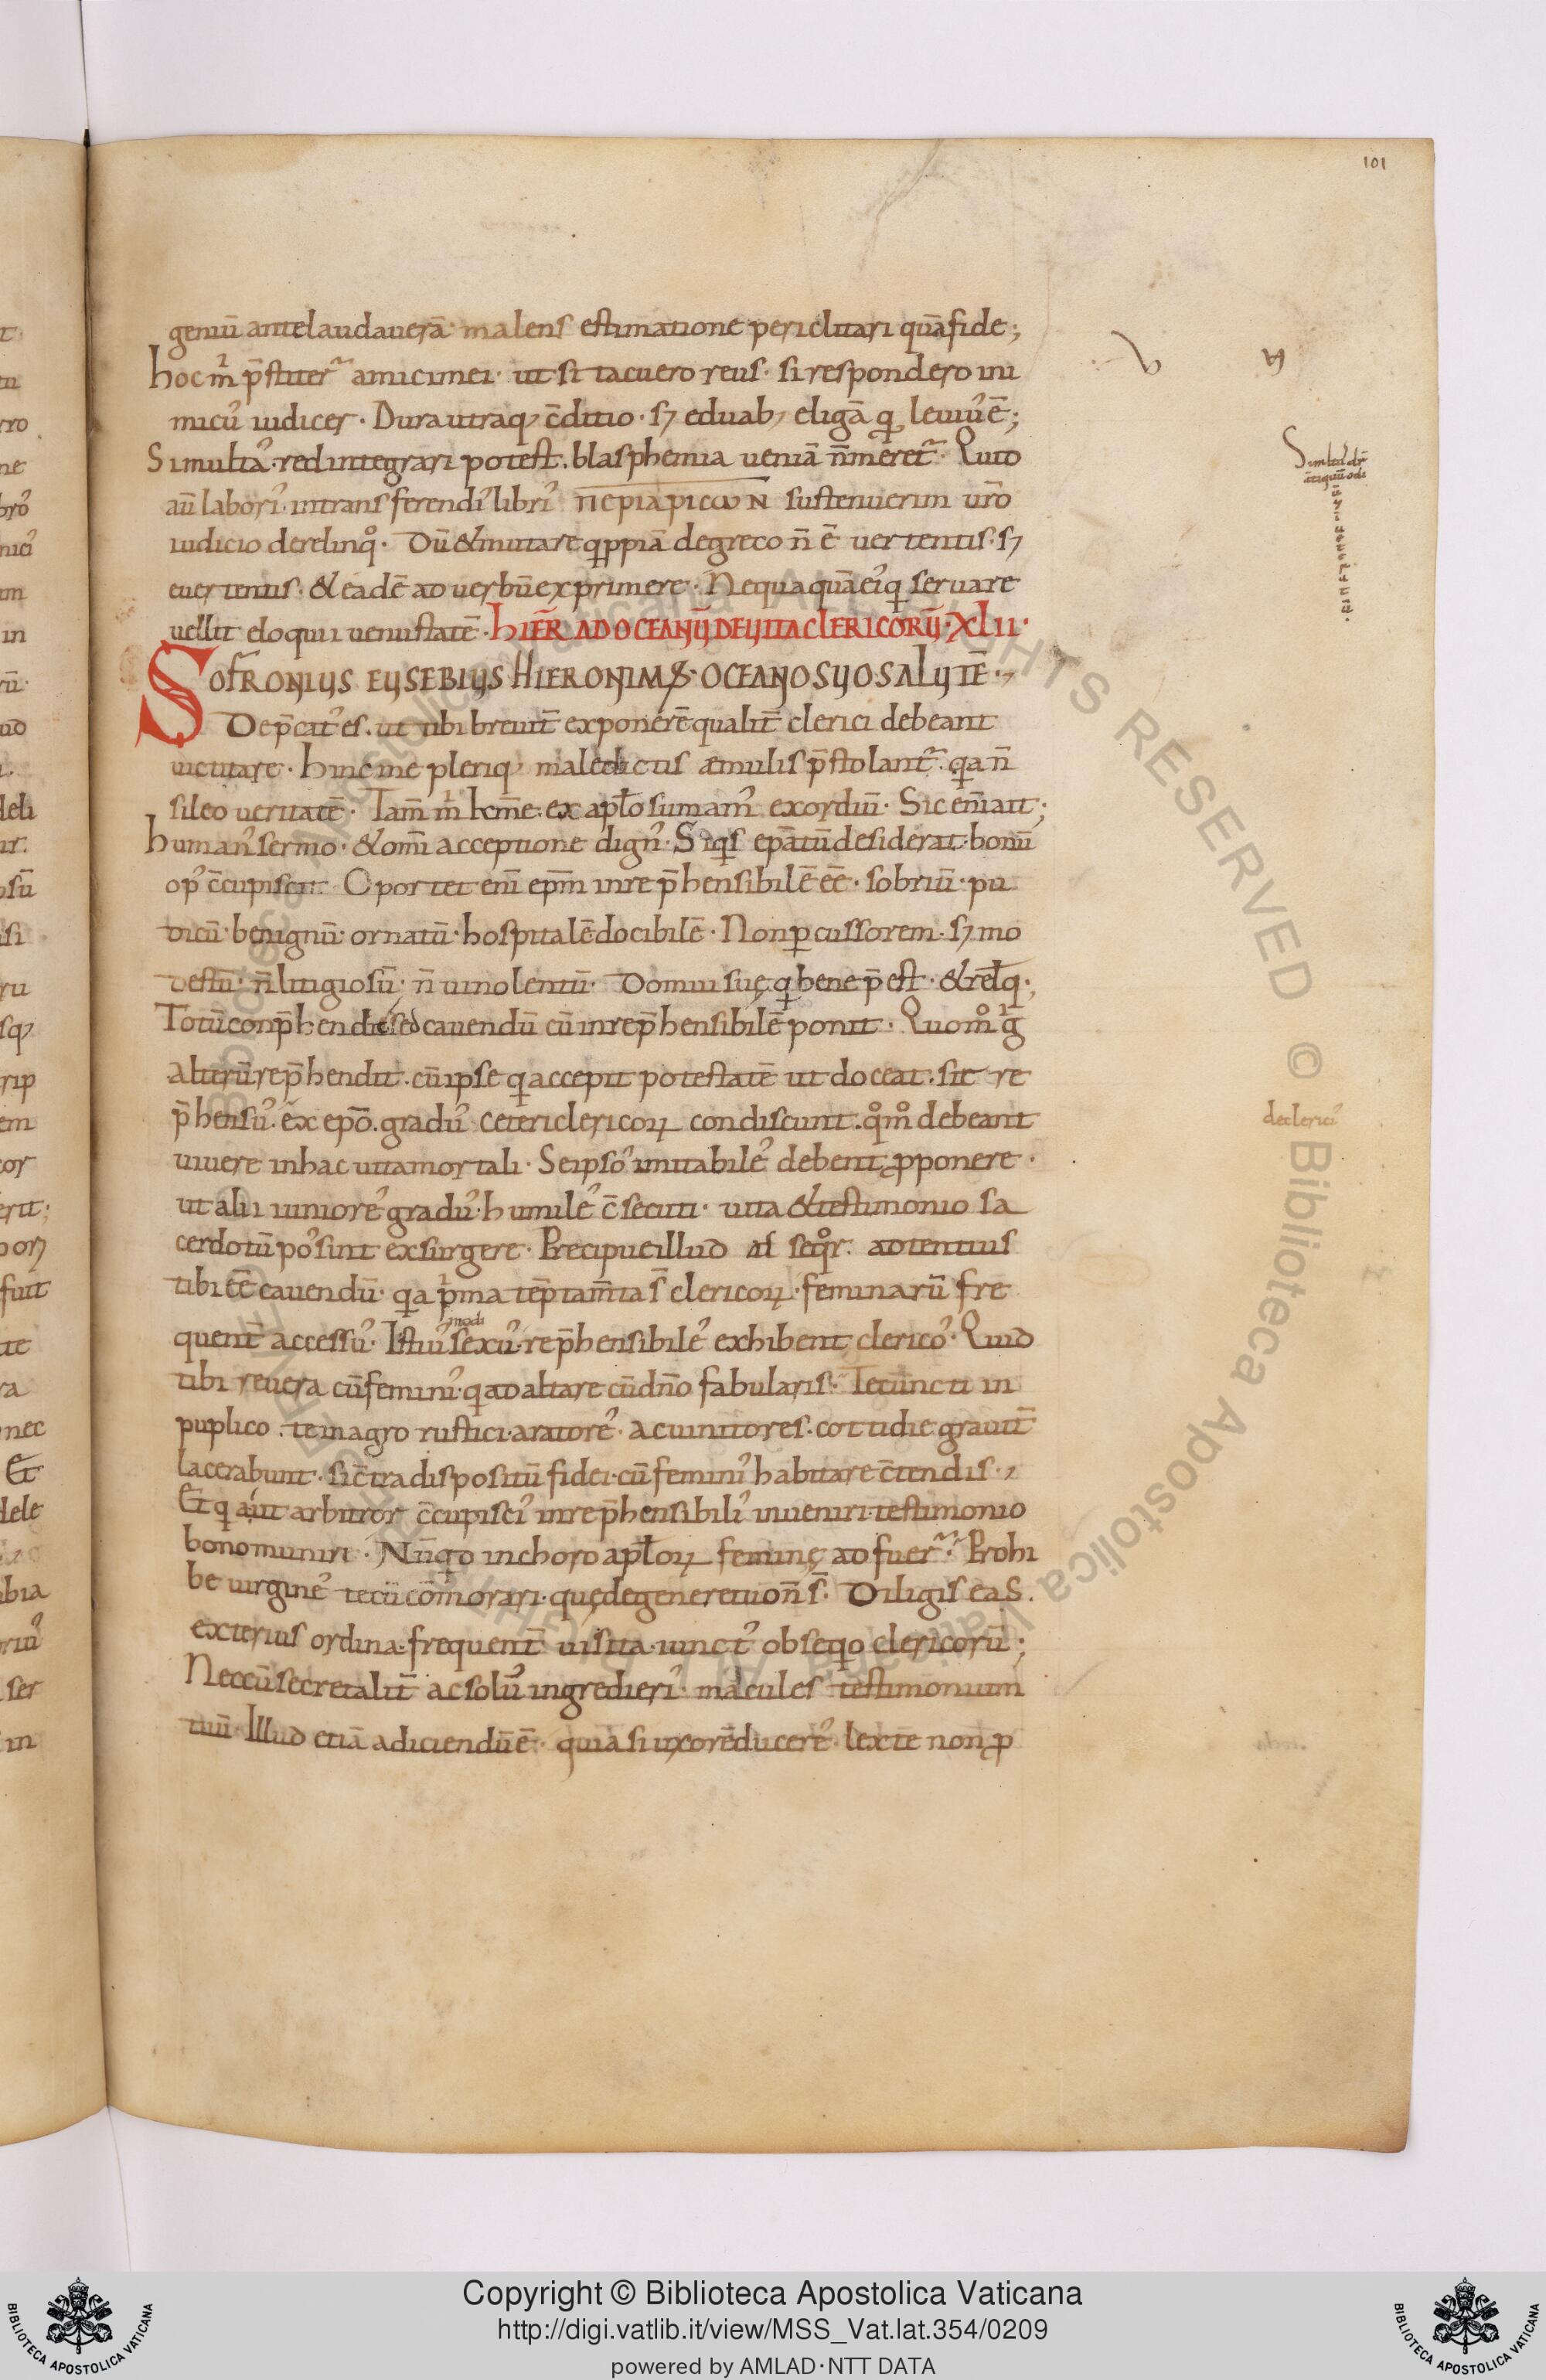 101
geniū ante laudauerā· malens estimatione periclitari quā fide;
hoc m̄ p̄stiter̄ amici mei· ut si tacuero reus· si respondero ini
micu᾽ iudicer· Dura utraq; c̄ditio· sꝫ e duab; eligā qđ leuiu᾽ ē;
Simulta᾽ redintegrari potest· blasphemia ueniā n̄ meret̄· Quid
aū labori᾽ in transferendi᾽ libri᾽ ΠΕΡΙΑΡΙCΩΝ sustenuerim ur̄o
iudicio derelinqͦ· Dū & mutare qppiā de greco n̄ ē uertentis· sꝫ
euertentis· & eadē ad uerbū exprimere· Nequaquā ei᾽ q seruare
uellit eloquii uenustatē· HIER̄ AD OCEANŪ DE UITA CLERICORŪ· XLII·
SOFRONIUS EUSEBIUS HIERONIMUS· OCEANO SUO SALUTĒ·
Dep̄cat᾽ es· ut tibi breuit̄ exponerē qualit̄ clerici debeant
uictitare· Hinc me pleriq; maledictis æmulis p̄stolant̄· qa n̄
sileo ueritatē· Tam̄ ex ap̄lo sumam᾽ exordiū· Sic enī ait;
human᾽ sermo· & omī acceptione dign᾽· Siqis ep̄atū desiderat· bonū
op᾽ c̄cupiscit· Oportet enī ep̄m inrep̄hensibilē ēē· sobriū· pu
dicū· benignū· ornatū· hospitalē docibilē· Non p̱cussorem· sꝫ mo
destū· n̄ litigiosū· n̄ uinolentū· Domui suę q bene p̄est· & relq̄·
Totū conp̄hendit sed cauendū cū inrep̄hensibilē ponit· Quomͦ g̃
alterū rep̄hendit· cū ipse q accepit potestatē ut doceat· sit re
p̄hensu᾽· ex ep̄o· gradu᾽ ceteri clericoꝝ condiscunt· qͦmͦ debeant
uiuere in hac uita mortali· Se ipso᾽ imitabile᾽ debent ꝓponere·
ut alii iuniore᾽ gradu᾽ humile᾽ c̄secuti· uita & testimonio sa
cerdotū po᾽sint exsurgere· Precipue illud adtentius
tibi ēē cauendū· qa p̍ma tēptam̄ta s̄ clericoꝝ· feminarū fre
modi
quent̄ accessu᾽· Istiu᾽ sexu᾽ rep̄hensibile᾽ exhibent clerico᾽· Quid
tibi reuera cū femini᾽ q ad altare cū dn̄o fabularis· Te cuncti in
puplico· te in agro rustici· aratore᾽· ac uinitores· cottidie grauit̄
lacerabunt· si c̄tra dispositū fidei· cū femini᾽ habitare c̄tendis·
Et q ait arbitror c̄cupisci᾽ inrep̄hensibili᾽ inueniri· testimonio
bono muniri· Nūqđ in choro ap̄loꝝ feminę adfuer̄· Prohi
be uirgine᾽ tecū cōmorari· quę de genere tuo n̄ s̄· Diligis eas·
exterius ordina· frequent̄ uisita· iunct᾽ obseqo clericorū;
Nec cū secretalit̄ ac solu᾽ ingredieri᾽ macules testimonium
tuū· Illud etiā adiciendū ē· quia si uxorē ducere᾽ lex te non ꝓ
de clerici᾽
Copyright © Biblioteca Apostolica Vaticana
http://digi.vatlib.it/view/MSS_Vat.lat.354/0209
powered by AMLAD·NTT DATA
BIBLIOTECA APOSTOLICA VATICANA
BIBLIOTECA APOSTOLICA VATICANA